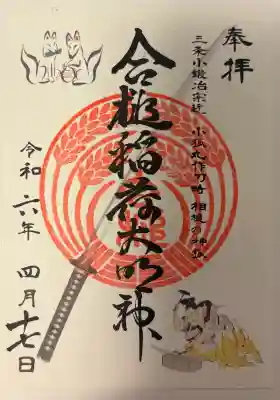 奉拝
三条小鍛冶宗近 小狐丸作刀時 相槌の神狐
合槌稲荷大明神
令和六年 四月十七日